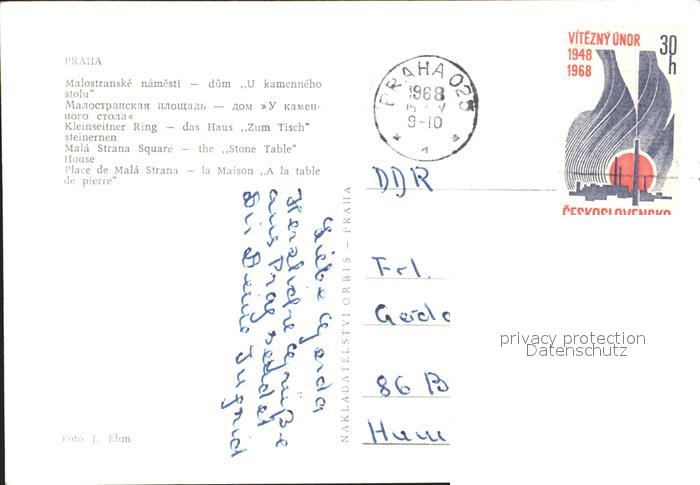 PRAHA
Malostranské náměstí — dům „U kamenného
stolu"
Малостранская площадь — дом »У камен-
ного стола«
Kleinseitner Ring — das Haus „Zum Tisch"
steinernen
Malá Strana Square — the „Stone Table"
House
Place de Malá Strana — la Maison „A la table
de pierre"
Foto J. Ehm
Liebe Gerda
Herzliche Grüße
aus Prag sendet
Dir Deine Ingrid
NAKLADATELSTVÍ ORBIS – PRAHA
PRAHA 025
1968
9-10
1
VÍTĚZNÝ ÚNOR
1948
1968
30
h
ČESKOSLOVENSKO
DDR
Frl.
Gerda
86 B
Hum
privacy protection
Datenschutz